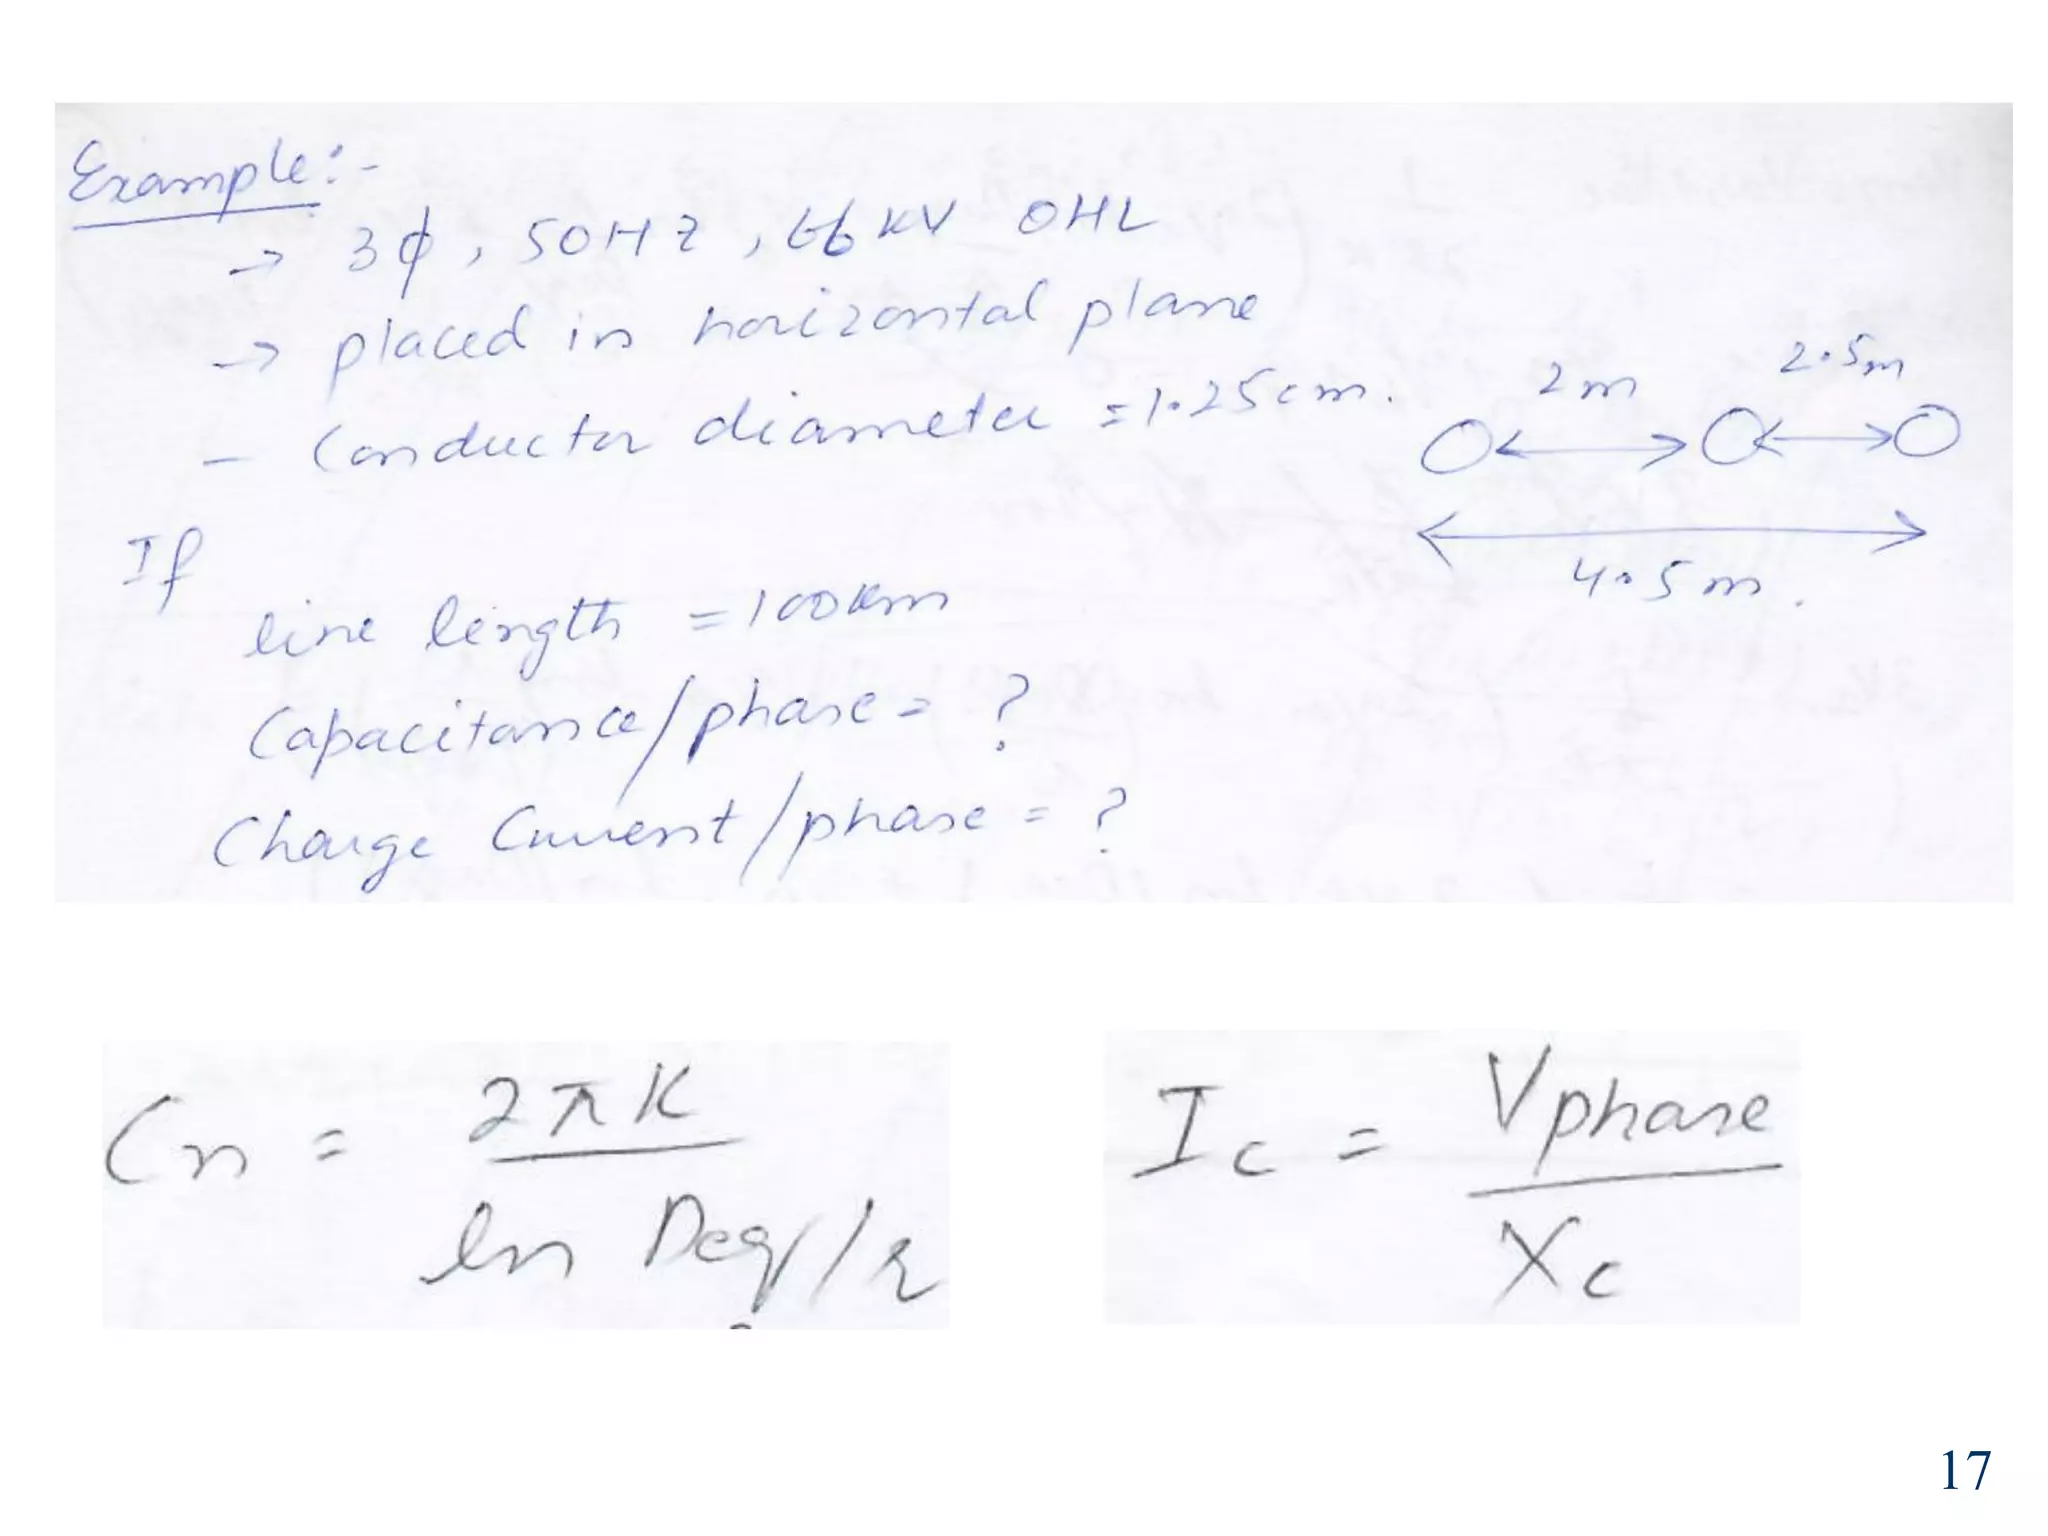 Example:-
→ 3ϕ, 50HZ, 66 KV OHL
→ placed in horizontal plane
- Conductor diameter = 1.25cm.
2m
2.5m
4.5m.
If
line length = 100km
Capacitance/phase = ?
Charge Current/phase = ?
Cn = 2πK / ln Deq/r
Ic = Vphase / Xc
17